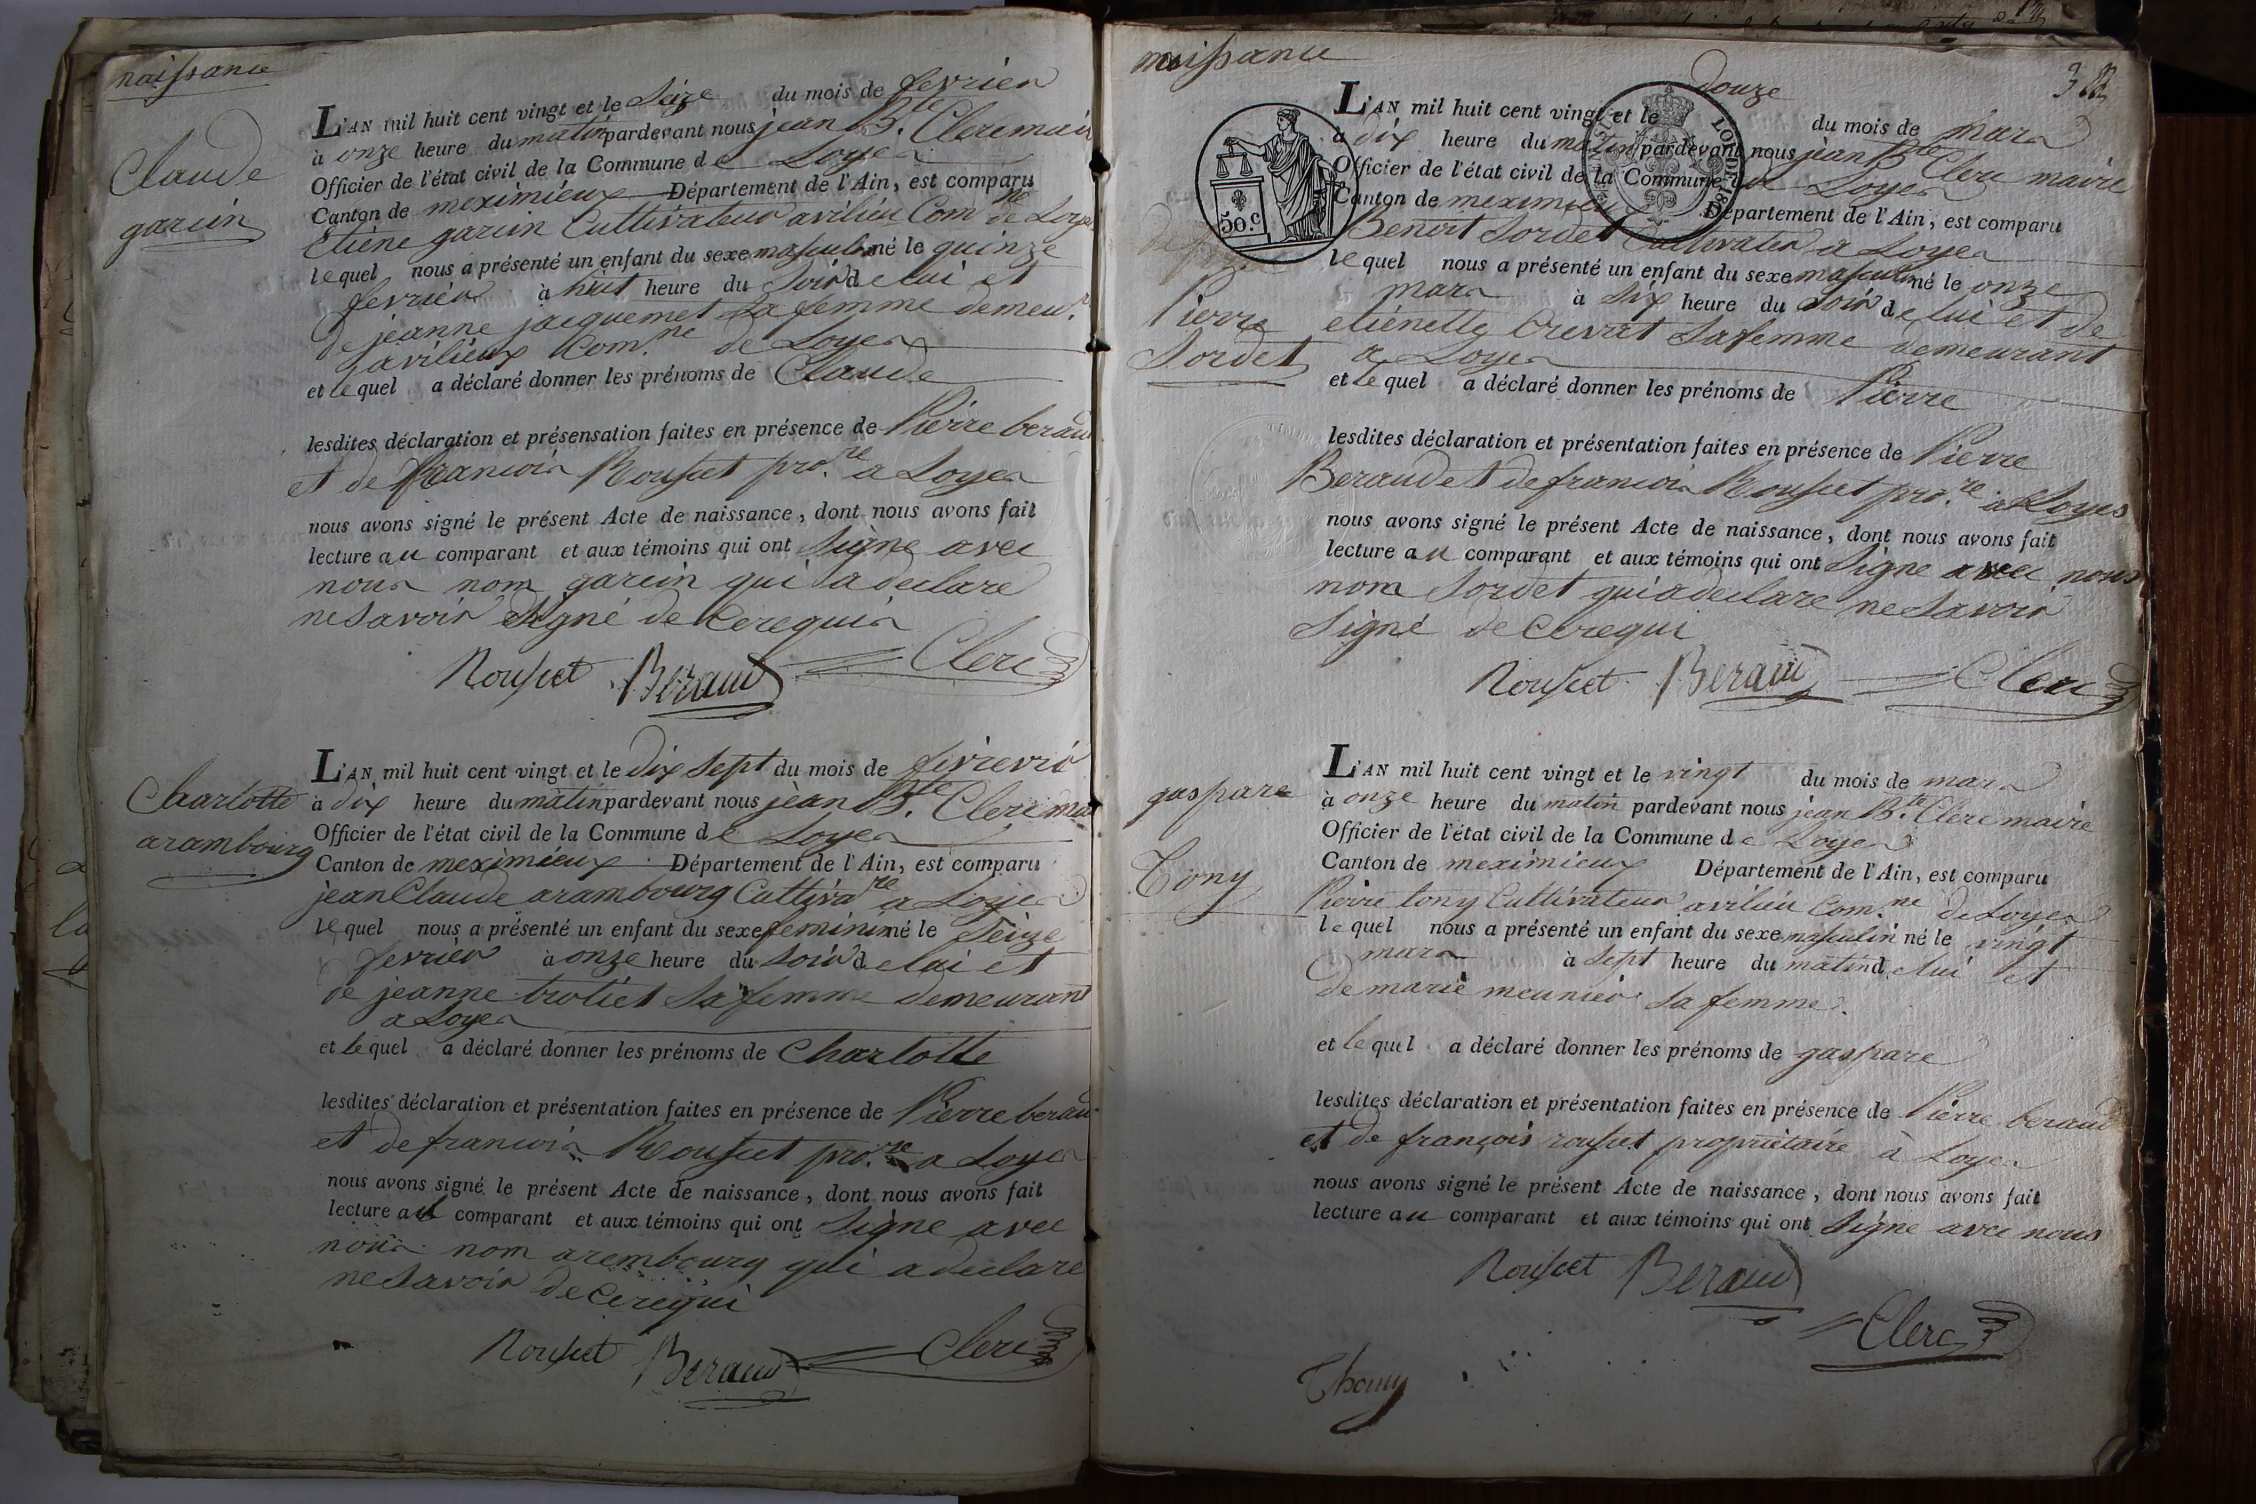 naissance
Claude
garcin
L'AN mil huit cent vingt et le Seize du mois de fevrier
à onze heure du matin pardevant nous jean Bte. Clerc maire
Officier de l'état civil de la Commune de Loyes
Canton de meximieux Département de l'Ain, est comparu
Etiène garcin Cultivateur a vilieu Comne de Loyes
lequel nous a présenté un enfant du sexe masculin né le quinze
fevrier à huit heure du Soir de lui et
de jeanne jacquemet Sa femme demeu.t
a vilieux Com.ne de Loyes
et le quel a déclaré donner les prénoms de Claude
lesdites déclaration et présensation faites en présence de Pierre beraud
et de francois Rousset pro.re a Loyes
nous avons signé le présent Acte de naissance, dont nous avons fait
lecture au comparant et aux témoins qui ont Signe avec
nous nom garcin qui a declare
ne Savoir Signé de Cerequis
Rousset Beraud Clerc
Charlotte
arambourg
L'AN mil huit cent vingt et le dix Sept du mois de
à dix heure du matin pardevant nous jean Bte. Clerc maire
Officier de l'état civil de la Commune de Loyes
Canton de meximieux Département de l'Ain, est comparu
jean Claude arambourg Cultiva.re a Loyes
le quel nous a présenté un enfant du sexe feminin né le Seize
fevrier à onze heure du Soir de lui et
de jeanne trotiet Sa femme demeurant
a Loyes
et le quel a déclaré donner les prénoms de Charlotte
lesdites déclaration et présentation faites en présence de Pierre beraud
et de francois Rousset pro.re a Loyes
nous avons signé le présent Acte de naissance, dont nous avons fait
lecture au comparant et aux témoins qui ont Signe avec
nous nom arembourg qui a declare
ne Savoir de Cerequi
Rousset Beraud Clerc
naissance
3
50.c
Pierre
Sordet
L'AN mil huit cent vingt et le douze du mois de mars
a dix heure du matin pardevant nous jean Bte Clerc maire
Officier de l'état civil de la Commune de Loyes
Canton de meximieux Département de l'Ain, est comparu
Benoit Sordet Cultivateur a Loyes
le quel nous a présenté un enfant du sexe masculin né le onze
mars à Six heure du Soir de lui et de
etienette Crevat Sa femme demeurant
a Loyes
et le quel a déclaré donner les prénoms de Pierre
lesdites déclaration et présentation faites en présence de Pierre
Beraud et de francois Rousset pro.re a Loyes
nous avons signé le présent Acte de naissance, dont nous avons fait
lecture au comparant et aux témoins qui ont Signe avec nous
nom Sordet qui a declare ne Savoir
Signé de Cerequi
Rousset Beraud Clerc
gaspare
Tony
L'AN mil huit cent vingt et le vingt du mois de mars
à onze heure du matin pardevant nous jean Bte. Clerc maire
Officier de l'état civil de la Commune de Loyes
Canton de meximieux Département de l'Ain, est comparu
Pierre tony Cultivateur a vilieu Com.ne de Loyes
le quel nous a présenté un enfant du sexe masculin né le vingt
mars à Sept heure du matin de lui et
de marie meunier Sa femme.
et le quel a déclaré donner les prénoms de gaspare
lesdites déclaration et présentation faites en présence de Pierre beraud
et de françois rousset propriètaire à Loyes
nous avons signé le présent Acte de naissance, dont nous avons fait
lecture au comparant et aux témoins qui ont Signe avec nous
Rousset Beraud
Clerc
Thony